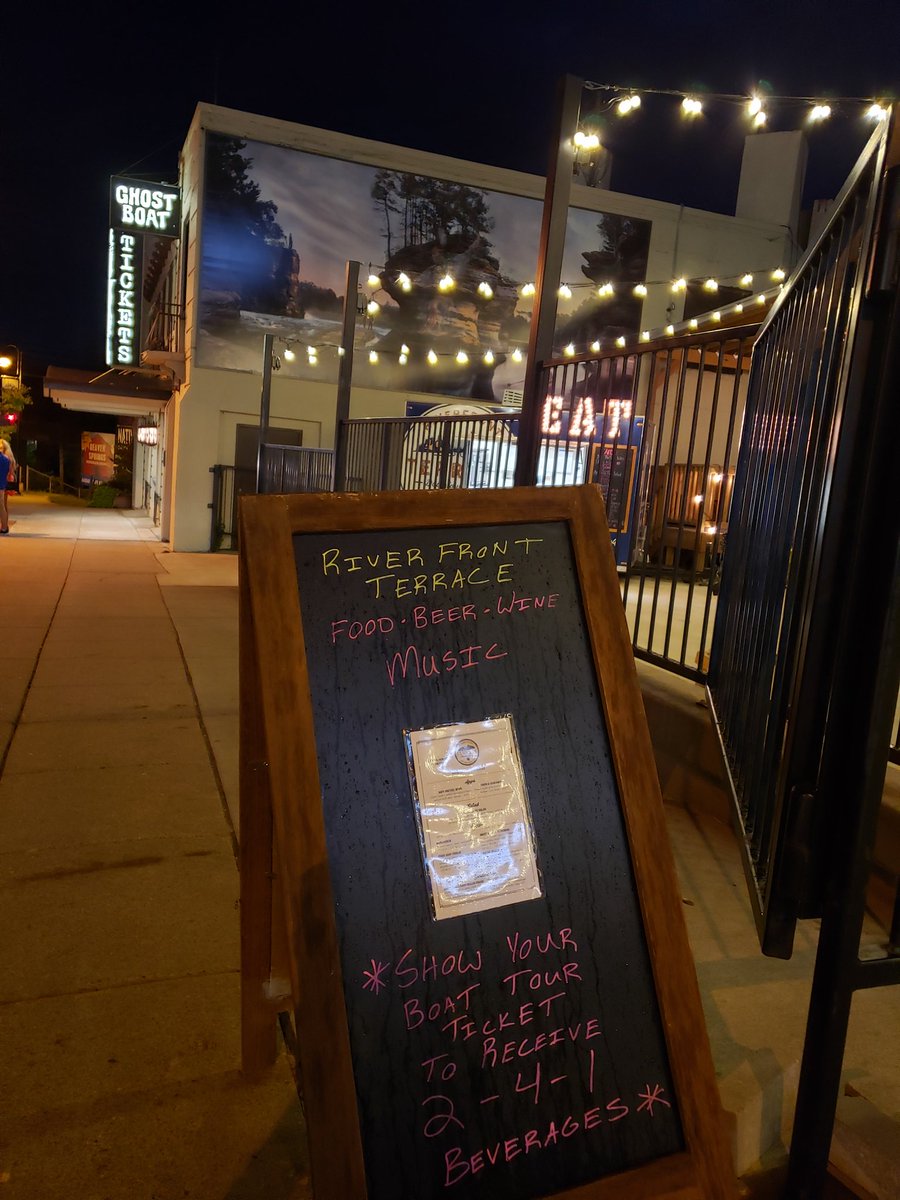 GHOST
BOAT
TICKETS
BEAVER
SPRINGS
EAT
RIVER FRONT
TERRACE
FOOD · BEER · WINE
MUSIC
Apps
Salad
*SHOW YOUR
BOAT TOUR
TICKET
TO RECEIVE
2-4-1
BEVERAGES*